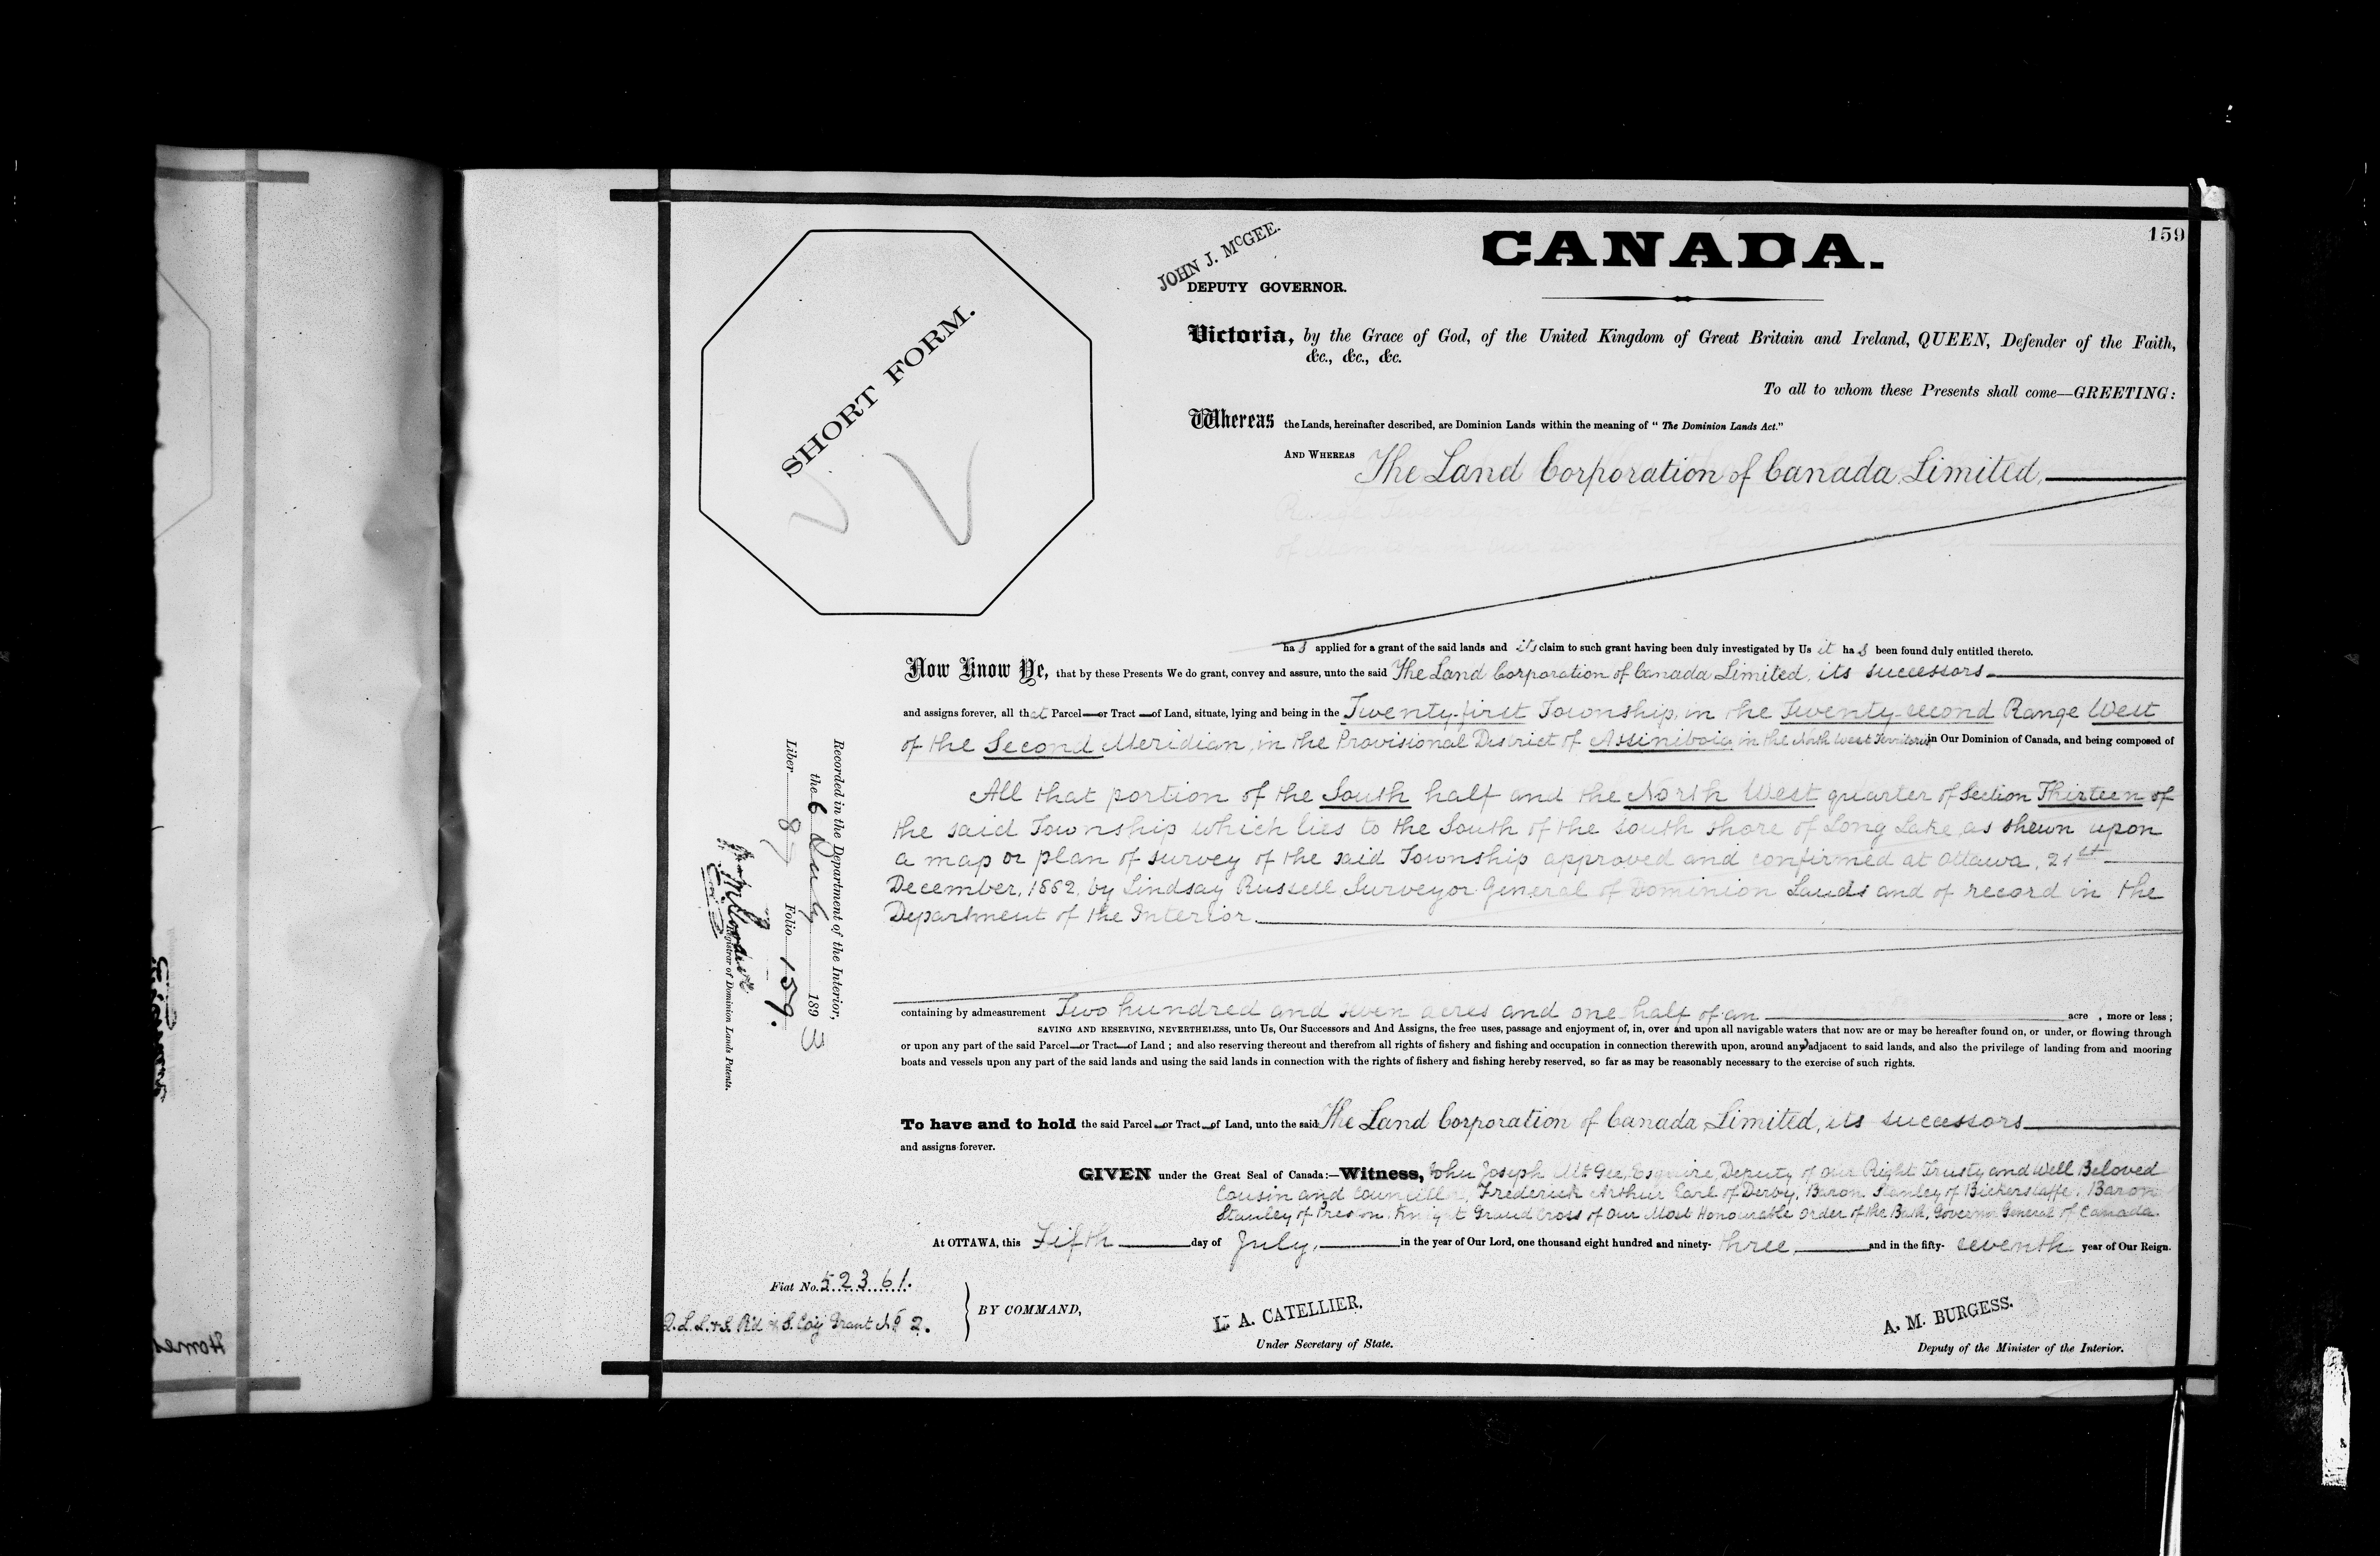 159
CANADA.
JOHN J. McGEE.
DEPUTY GOVERNOR.
SHORT FORM.
Victoria, by the Grace of God, of the United Kingdom of Great Britain and Ireland, QUEEN, Defender of the Faith,
&c., &c., &c.
To all to whom these Presents shall come—GREETING:
Whereas the Lands, hereinafter described, are Dominion Lands within the meaning of "The Dominion Lands Act."
AND WHEREAS The Land Corporation of Canada, Limited,
has applied for a grant of the said lands and its claim to such grant having been duly investigated by Us it has been found duly entitled thereto.
Now Know Ye, that by these Presents We do grant, convey and assure, unto the said The Land Corporation of Canada Limited, its successors
and assigns forever, all that Parcel—or Tract—of Land, situate, lying and being in the Twenty-first Township, in the Twenty-second Range West
of the Second Meridian, in the Provisional District of Assiniboia in the North West Territories in Our Dominion of Canada, and being composed of
All that portion of the South half and the North West quarter of Section Thirteen of
the said Township which lies to the South of the south shore of Long Lake, as shewn upon
a map or plan of survey of the said Township approved and confirmed at Ottawa, 21st
December, 1882, by Lindsay Russell Surveyor General of Dominion Lands and of record in the
Department of the Interior.
containing by admeasurement Two hundred and seven acres and one half of an acre , more or less ;
SAVING AND RESERVING, NEVERTHELESS, unto Us, Our Successors and And Assigns, the free uses, passage and enjoyment of, in, over and upon all navigable waters that now are or may be hereafter found on, or under, or flowing through
or upon any part of the said Parcel—or Tract—of Land ; and also reserving thereout and therefrom all rights of fishery and fishing and occupation in connection therewith upon, around any adjacent to said lands, and also the privilege of landing from and mooring
boats and vessels upon any part of the said lands and using the said lands in connection with the rights of fishery and fishing hereby reserved, so far as may be reasonably necessary to the exercise of such rights.
To have and to hold the said Parcel—or Tract—of Land, unto the said The Land Corporation of Canada Limited, its successors
and assigns forever.
GIVEN under the Great Seal of Canada:—Witness, John Joseph McGee, Esquire, Deputy of Our Right Trusty and Well Beloved
Cousin and Councillor, Frederick Arthur Earl of Derby, Baron Stanley of Bickerstaffe, Baron
Stanley of Preston, Knight Grand Cross of Our Most Honourable Order of the Bath, Governor General of Canada.
At OTTAWA, this Fifth day of July, in the year of Our Lord, one thousand eight hundred and ninety- three and in the fifty- seventh year of Our Reign.
Fiat No. 52361.
Q.L.L.&S. R'd & S. Coy Grant No 2.
BY COMMAND,
L. A. CATELLIER.
Under Secretary of State.
A. M. BURGESS.
Deputy of the Minister of the Interior.
Recorded in the Department of the Interior,
the 6 July 1893
Liber 87 Folio 159.
Registrar of Dominion Lands Patents.